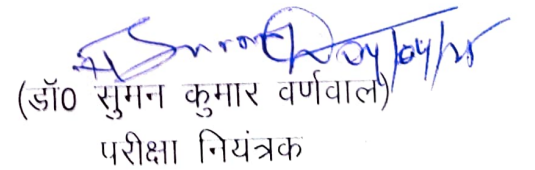 04/04/25
(डॉ0 सुमन कुमार वर्णवाल)
परीक्षा नियंत्रक